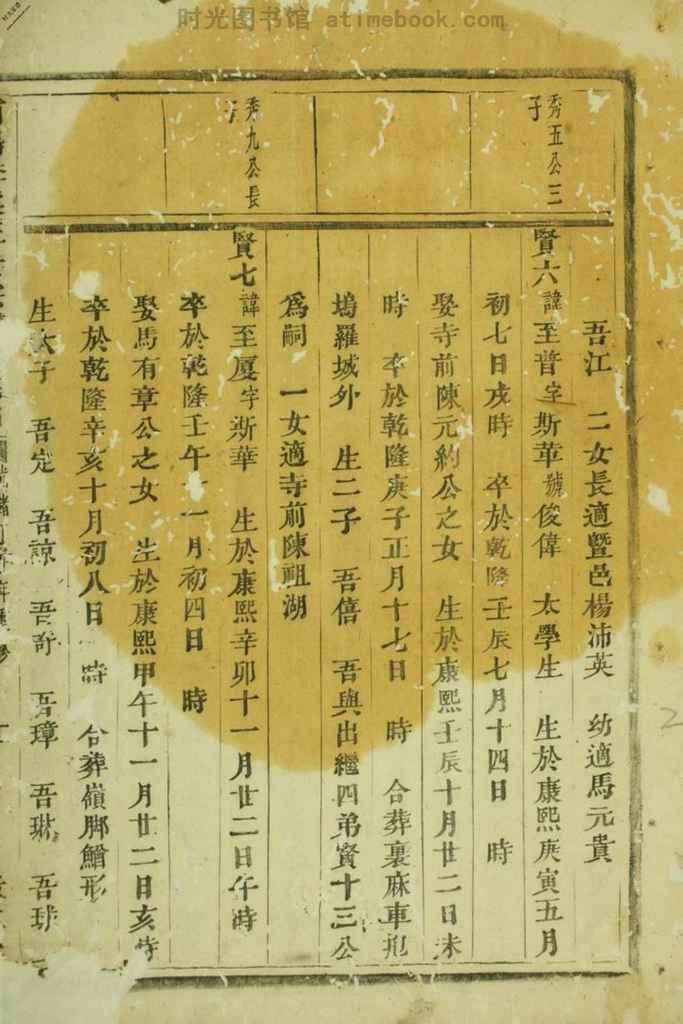 时光图书馆 atimebook.com
秀五公三子
吾江 二女長適暨邑楊沛英 幼適馬元貴
賢六諱至普字斯華號俊偉 太學生 生於康熙庚寅五月
初七日戌時 卒於乾隆壬辰七月十四日 時
娶寺前陳元約公之女 生於康熙壬辰十月廿二日未
時 卒於乾隆庚子正月十七日 時 合葬裏麻車
塢羅城外 生二子 吾僖 吾與出繼四弟賢十三公
為嗣 一女適寺前陳祖湖
秀九公長子
賢七諱至厦字斯華 生於康熙辛卯十一月廿二日午時
卒於乾隆壬午十一月初四日 時
娶馬有章公之女 生於康熙甲午十一月廿二日亥時
卒於乾隆辛亥十月初八日 時 合葬嶺脚鰌形
生六子 吾定 吾諒 吾奇 吾璋 吾琳 吾球